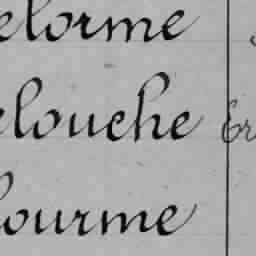 elorme
elouche Er
lourme